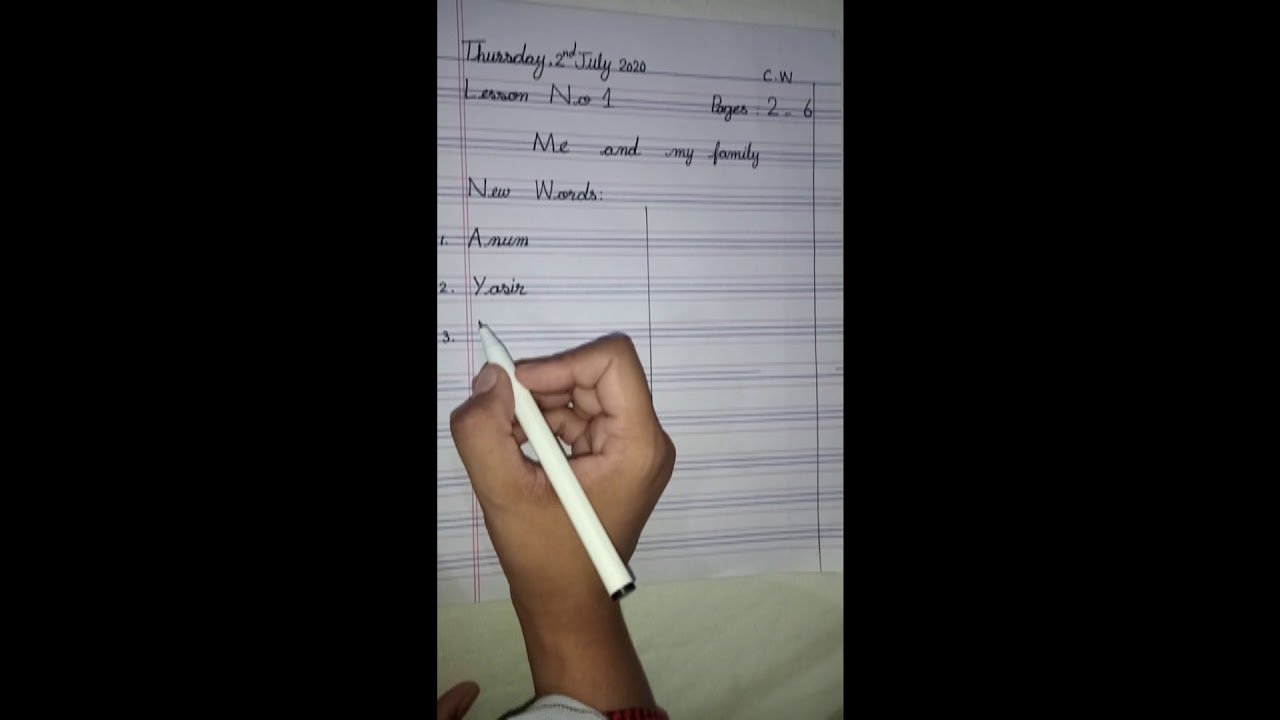 Thursday, 2nd July 2020
C.W
Lesson No 1 Pages: 2-6
Me and my family
New Words:
1. Anum
2. Yasir
3.